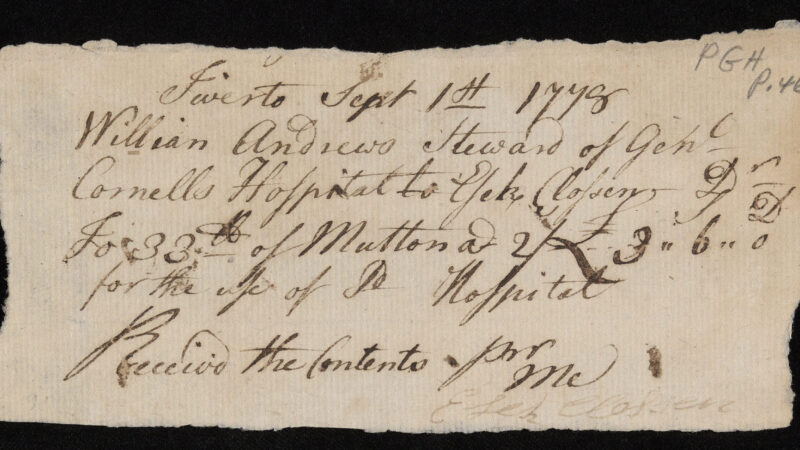 PGH
P.46
Tiverto Sept 1st 1778
Willian Andrews Steward of Genl
Cornells Hospital to Esek Clossen Dr
D
To 33 lb of Mutton a 2/ £ 3 " 6 " 0
for the use of Sd Hospital
Receivd the Contents pr
Me
Esek Clossen